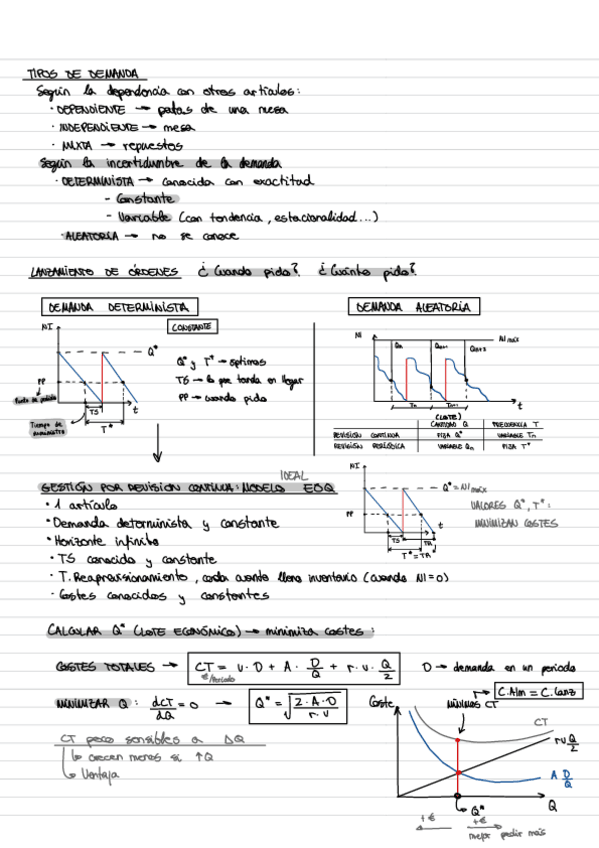 TIPOS DE DEMANDA
Según la dependencia con otros artículos:
· DEPENDIENTE → patas de una mesa
· INDEPENDIENTE → mesa
· MIXTA → repuestos
Según la incertidumbre de la demanda
· DETERMINISTA → conocida con exactitud
- Constante
- Variable (con tendencia, estacionalidad...)
· ALEATORIA → no se conoce
LANZAMIENTO DE ÓRDENES ¿Cuando pido? ¿Cuánto pido?
DEMANDA DETERMINISTA
CONSTANTE
NI
Q*
PP
Punto de pedido
TS
t
T*
Tiempo de suministro
Q* y T* → optimos
TS → lo que tarda en llegar
PP → cuando pido
DEMANDA ALEATORIA
NI
Qn
Qn+1
Qn+2
NI máx
Tn
Tn+1
t
(LOTE)
CANTIDAD Q
FRECUENCIA T
REVISIÓN CONTINUA FIJA Q* VARIABLE Tn
REVISIÓN PERIÓDICA VARIABLE Qn FIJA T*
IDEAL
GESTIÓN POR REVISIÓN CONTINUA: MODELO EOQ
• 1 artículo
• Demanda determinista y constante
• Horizonte infinito
• TS conocido y constante
• T. Reaprovisionamiento, cada cuanto lleno inventario (cuando NI=0)
• Costes conocidos y constantes
NI
Q* = NI máx
PP
TS
TR
t
T* = TR
VALORES Q*, T*:
MINIMIZAN COSTES
CALCULAR Q* (LOTE ECONÓMICO) → minimiza costes:
COSTES TOTALES → CT = v·D + A·D/Q + r·v·Q/2
€/Periodo
D → demanda en un periodo
MINIMIZAR Q: dCT/dQ = 0 → Q* = √(2·A·D/r·v)
C.Alm = C.lanz
CT poco sensibles a ΔQ
↳ crecen menos si ↑Q
↳ Ventaja
Coste
MÍNIMOS CT
CT
rv Q/2
A D/Q
Q
Q*
+€
+€
mejor pedir más